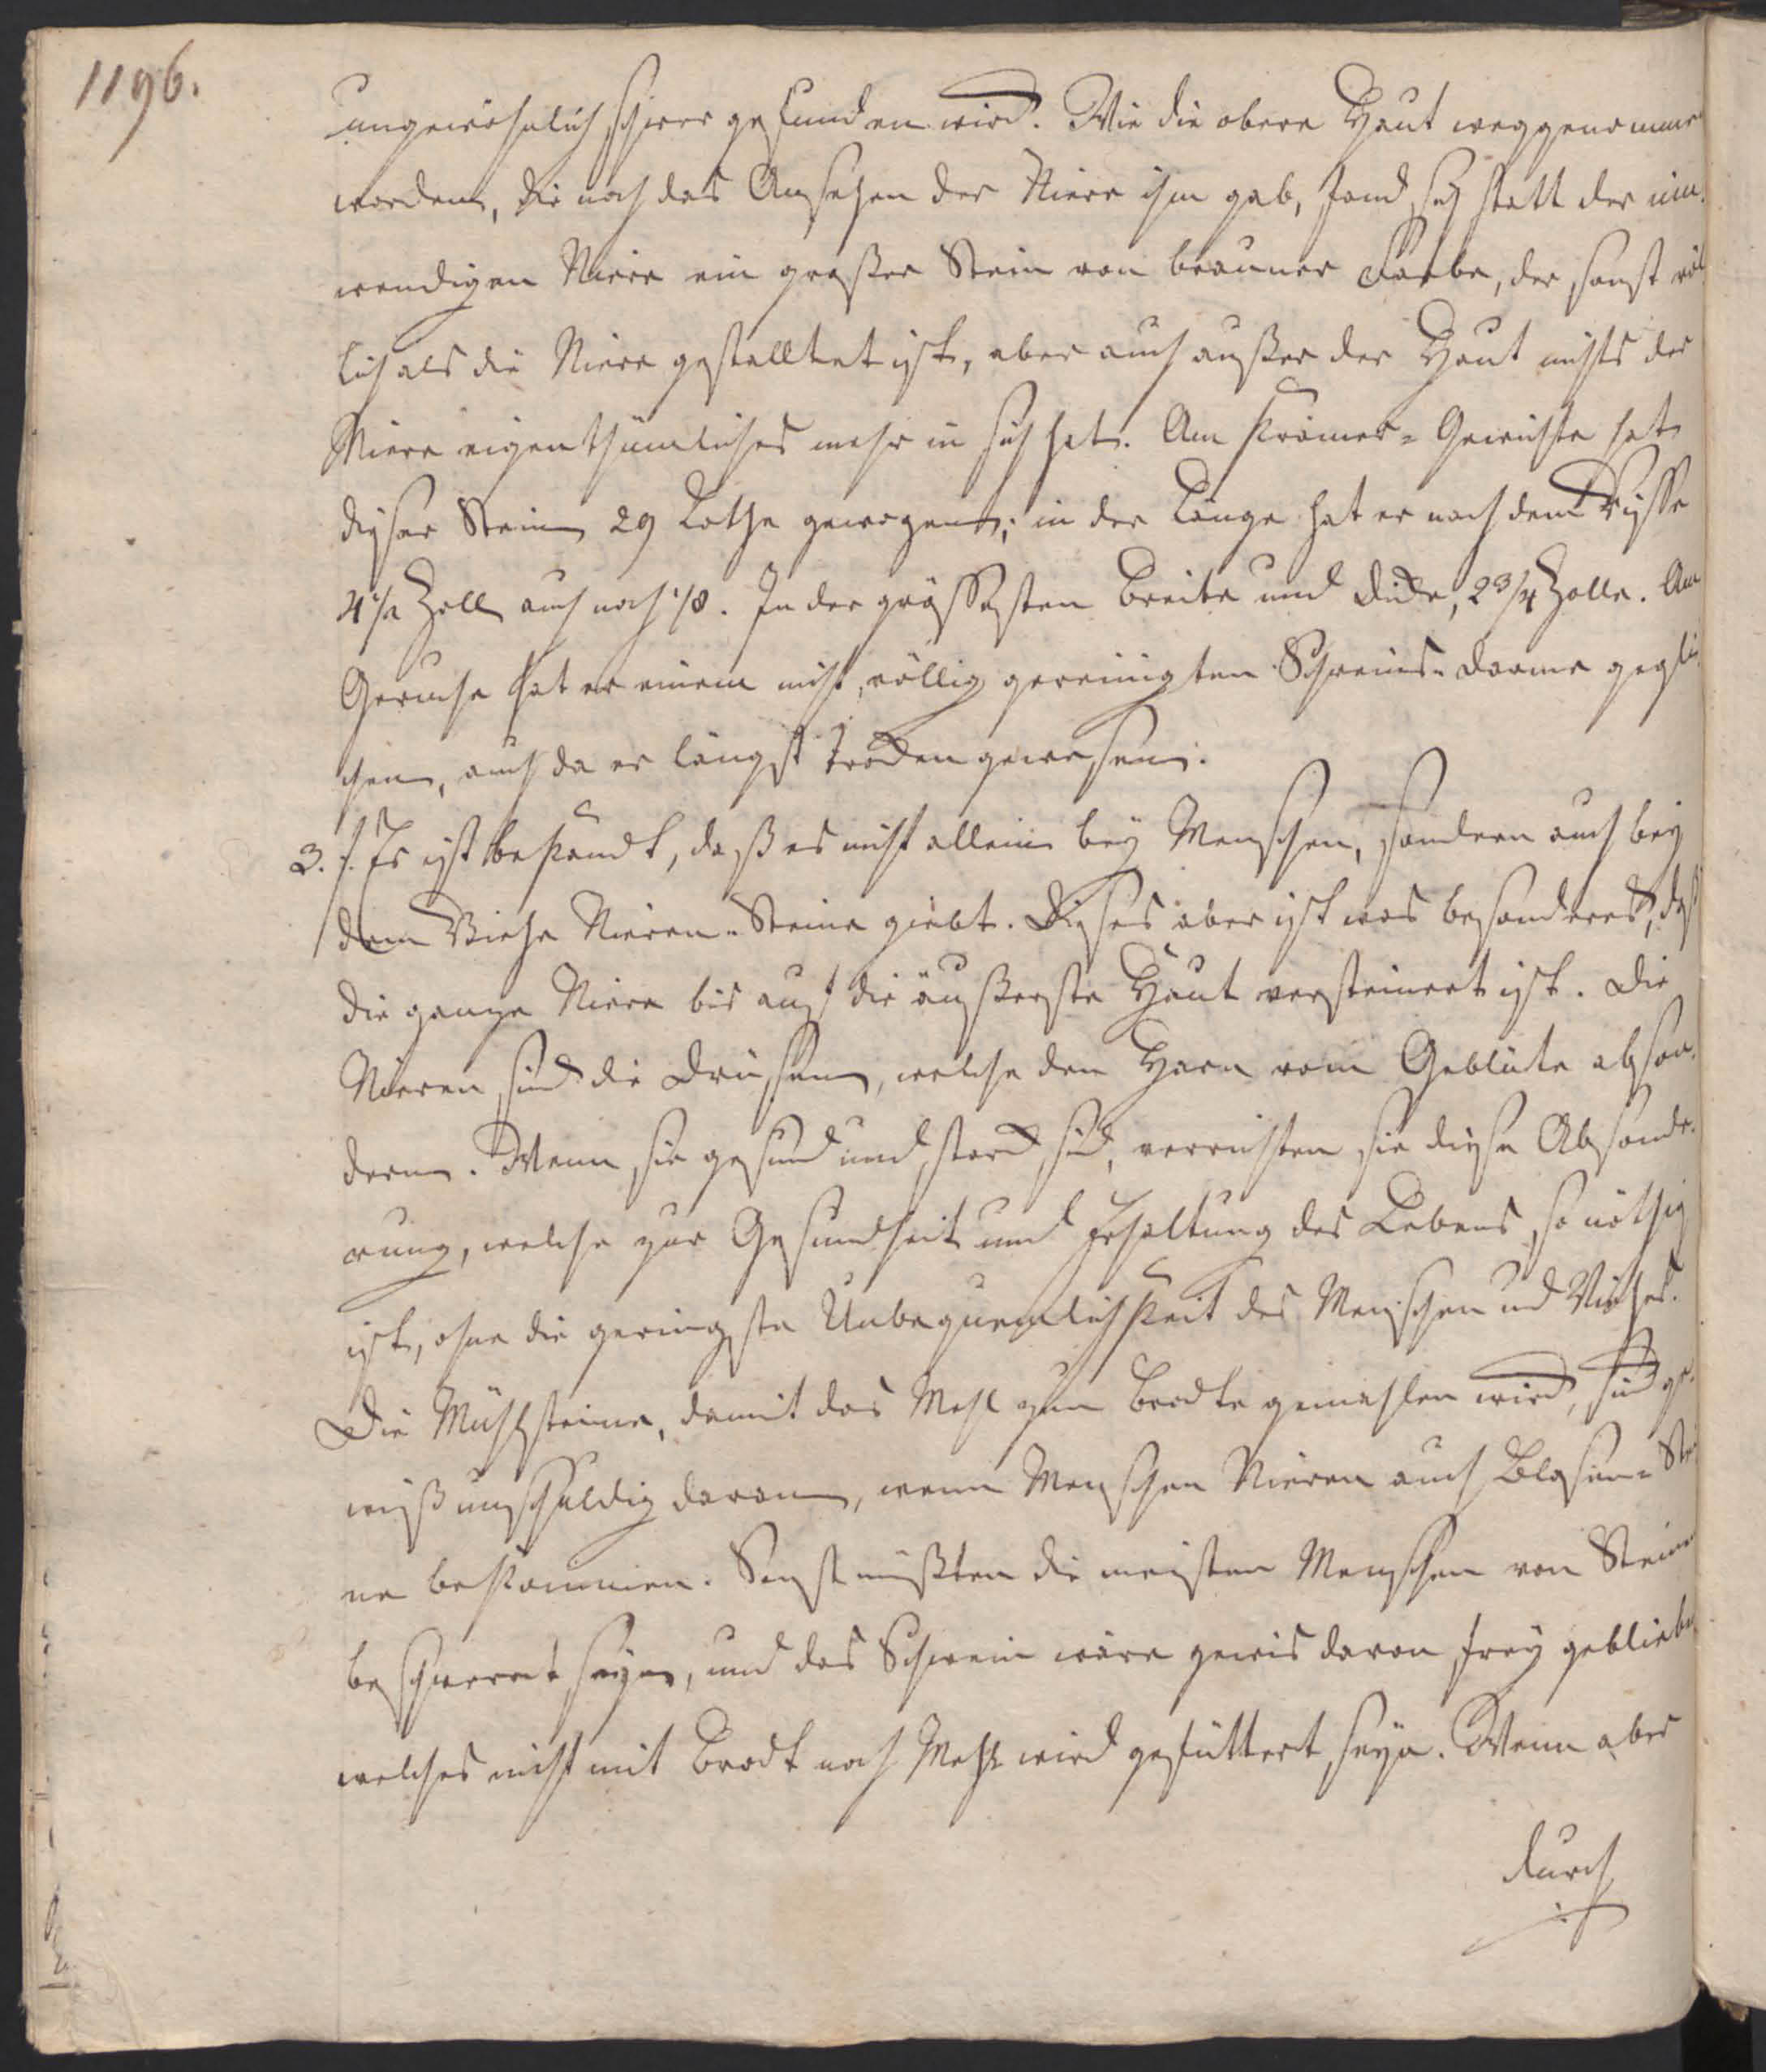 1196.
ungewöhnlich schwer gefunden wird. Wie die obere Haut weggenommen
worden, die noch das Ansehen der Niere ihm gab, fand sich statt der inn-
wendigen Niere ein großer Stein von brauner Farbe, der sonst völ
lich als die Niere gestalltet ist, aber auch außer der Haut nichts der
Niere eigenthümliches mehr in sich hat. Am Krämer-Gewichte hat
dieser Stein 29 Lothe gewogen; in der Länge hat er nach dem Risse
4 1/2 Zoll auch noch 1/8. In der grössesten Breite und Dicke, 2 3/4 Zolle. Am
Geruche hat er einem nicht völlig gereinigten Schweins-Darme gegli-
chen, auch da er längst trocken gewesen.
3. f. Es ist bekandt, daß es nicht allein bey Menschen, sondern auch bey
dem Viehe Nieren-Steine giebt. Dieses aber ist was besonderes, daß
die ganze Niere bis auf die äußerste Haut versteinert ist. Die
Nieren sind die Drüsen, welche den Harn vom Geblüte abson-
dern. Wenn sie gesund und starck sind, verrichten sie diese Absonde-
rung, welche zur Gesundheit und Erhaltung des Lebens so nöthig
ist, ohne die geringste Unbequemlichkeit des Menschen und Viehes.
Die Mühlsteine, damit das Mehl zum Brodte gemahlen wird, sind ge-
wiß unschuldig daran, wenn Menschen Nieren auch Blasen-Stei
ne bekommen. Sonst müßten die meisten Menschen von Steinen
beschweret seyn, und das Schwein wäre gewis davon frey geblieben
welches nicht mit Brodt noch Mehl wird gefüttert seyn. Wenn aber
durch